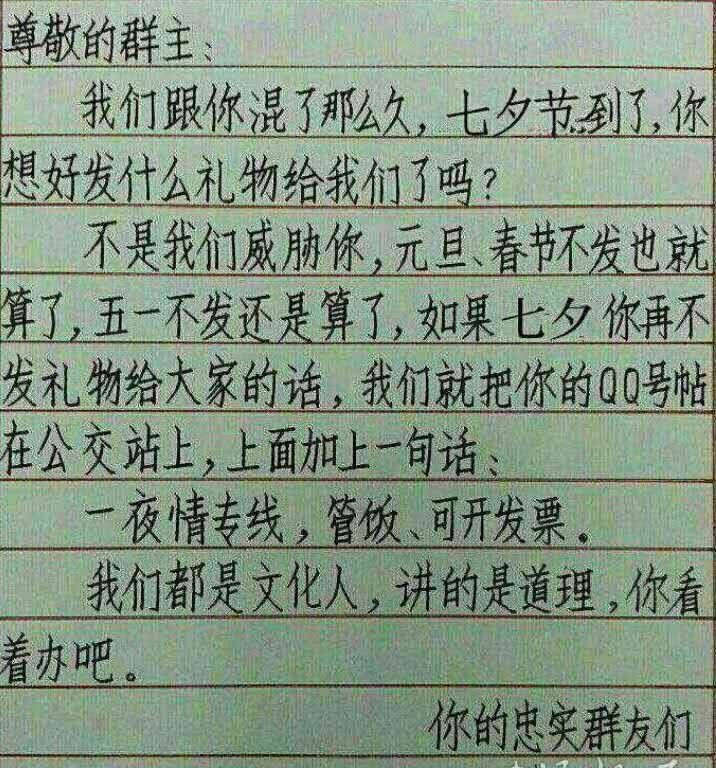 尊敬的群主：
我们跟你混了那么久，七夕节到了，你
想好发什么礼物给我们了吗？
不是我们威胁你，元旦、春节不发也就
算了，五一不发还是算了，如果七夕你再不
发礼物给大家的话，我们就把你的QQ号帖
在公交站上，上面加上一句话：
一夜情专线，管饭、可开发票。
我们都是文化人，讲的是道理，你看
着办吧。
你的忠实群友们